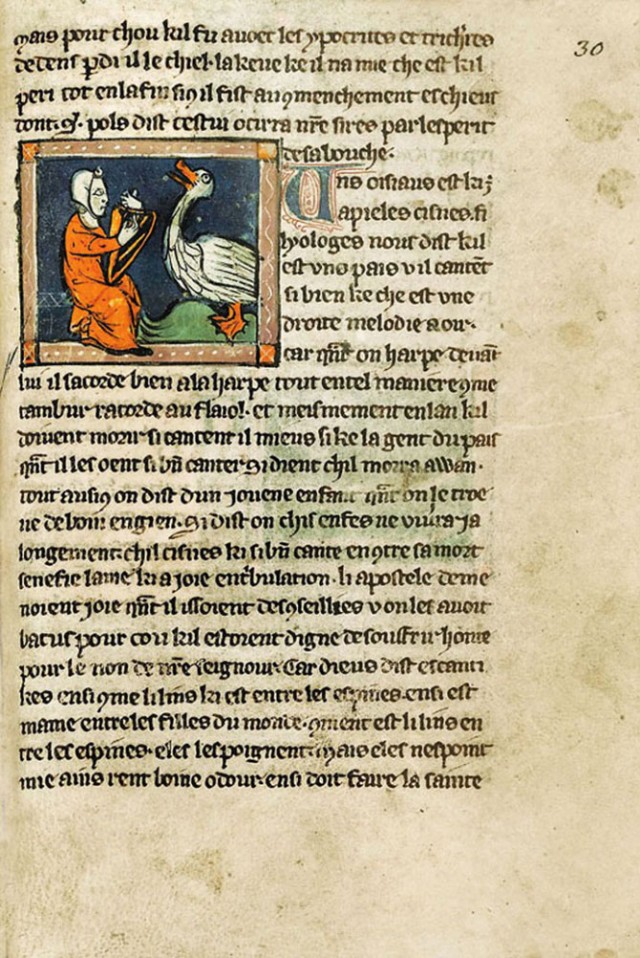 mais pour chou kil fu auoec les ypocrites et trichres
dedens pdi il le chief. la keue ke il na mie che est kil
peri tot en la fin si9 il fist au 9menchement eschieus
dont. pols dist cestui ocirra nre sires par lesperit
de sa bouche.
30
Uns oisiaus est ki
apieles cisnes. fi
syologes nous dist kil
est vns pais v il cantent
si bien ke che est vne
droite melodie a oir.
car qnt on harpe deuant
lui il sacorde bien a la harpe tout en tel maniere 9me
tambur racorde au flaiol. et meismement en lan kil
doiuent morir si cantent il mieus si ke la gent du pais
qnt il les oent si bn canter si dient chil morra awan.
tout ausi9 on dist dun jouene enfant qnt on le troe
ue de boin engien. si dist on chis enfes ne viura ja
longement. chil cisnes ki si bn cante en9tre sa mort
senefie lame ki a joie en tbulation. li apostele deme
noient joie qnt il issoient des 9seillies v on les auoit
batus pour cou kil estoient digne de soufrir honte
pour le non de nre seignour. Car dieus dist es canti
kes ensi 9me li lins ki est entre les espines. ensi est
mamie entre les filles du monde. 9ment est li lins en
tre les espines. eles les poignent. mais eles nes point
mie ains rent boine odour. ensi doit faire la sainte